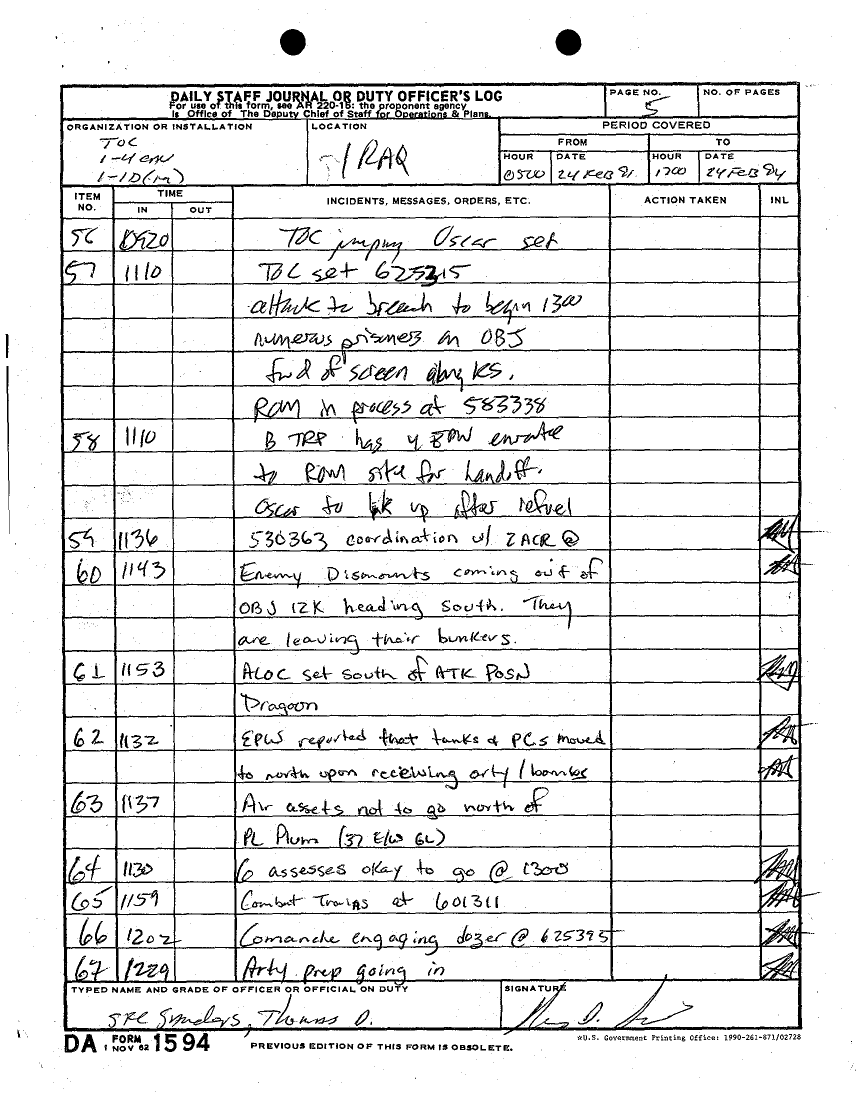 DAILY STAFF JOURNAL OR DUTY OFFICER'S LOG
For use of this form, see AR 220-15; the proponent agency
is Office of The Deputy Chief of Staff for Operations & Plans.
PAGE NO.
5
NO. OF PAGES
ORGANIZATION OR INSTALLATION
TOC
1-4 CAV
1-ID(M)
LOCATION
IRAQ
PERIOD COVERED
FROM
TO
HOUR
0500
DATE
24 FEB 91
HOUR
1700
DATE
24 FEB 91
ITEM NO.
TIME
IN
OUT
INCIDENTS, MESSAGES, ORDERS, ETC.
ACTION TAKEN
INL
56 0920 TOC jumping Oscar set
57 1110 TOC set 625315
attack to breach to begin 1300
numerous prisoners on OBJ
fwd of screen along KS.
ROM in process at 583338
58 1110 B TRP has 4 EPW enroute
to ROM site for handoff.
Oscar to link up after refuel
59 1136 530363 coordination w/ 2ACR @
60 1143 Enemy Dismounts coming out of
OBJ 12K heading south. They
are leaving their bunkers.
61 1153 ALOC set south of ATK POSN
Dragoon
62 1132 EPWS reported that tanks & PCs moved
to north upon receiving arty/bombs
63 1137 Air assets not to go north of
PL Plum (37 E/W GL)
64 1130 6 assesses okay to go @ 1300
65 1159 Combat Trains at 601311
66 1202 Comanche engaging dozer @ 625395
67 1229 Arty prep going in
TYPED NAME AND GRADE OF OFFICER OR OFFICIAL ON DUTY
SFC Sanders, Thomas D.
SIGNATURE
DA FORM 1594
1 NOV 62
PREVIOUS EDITION OF THIS FORM IS OBSOLETE.
☆U.S. Government Printing Office: 1990-261-871/02728